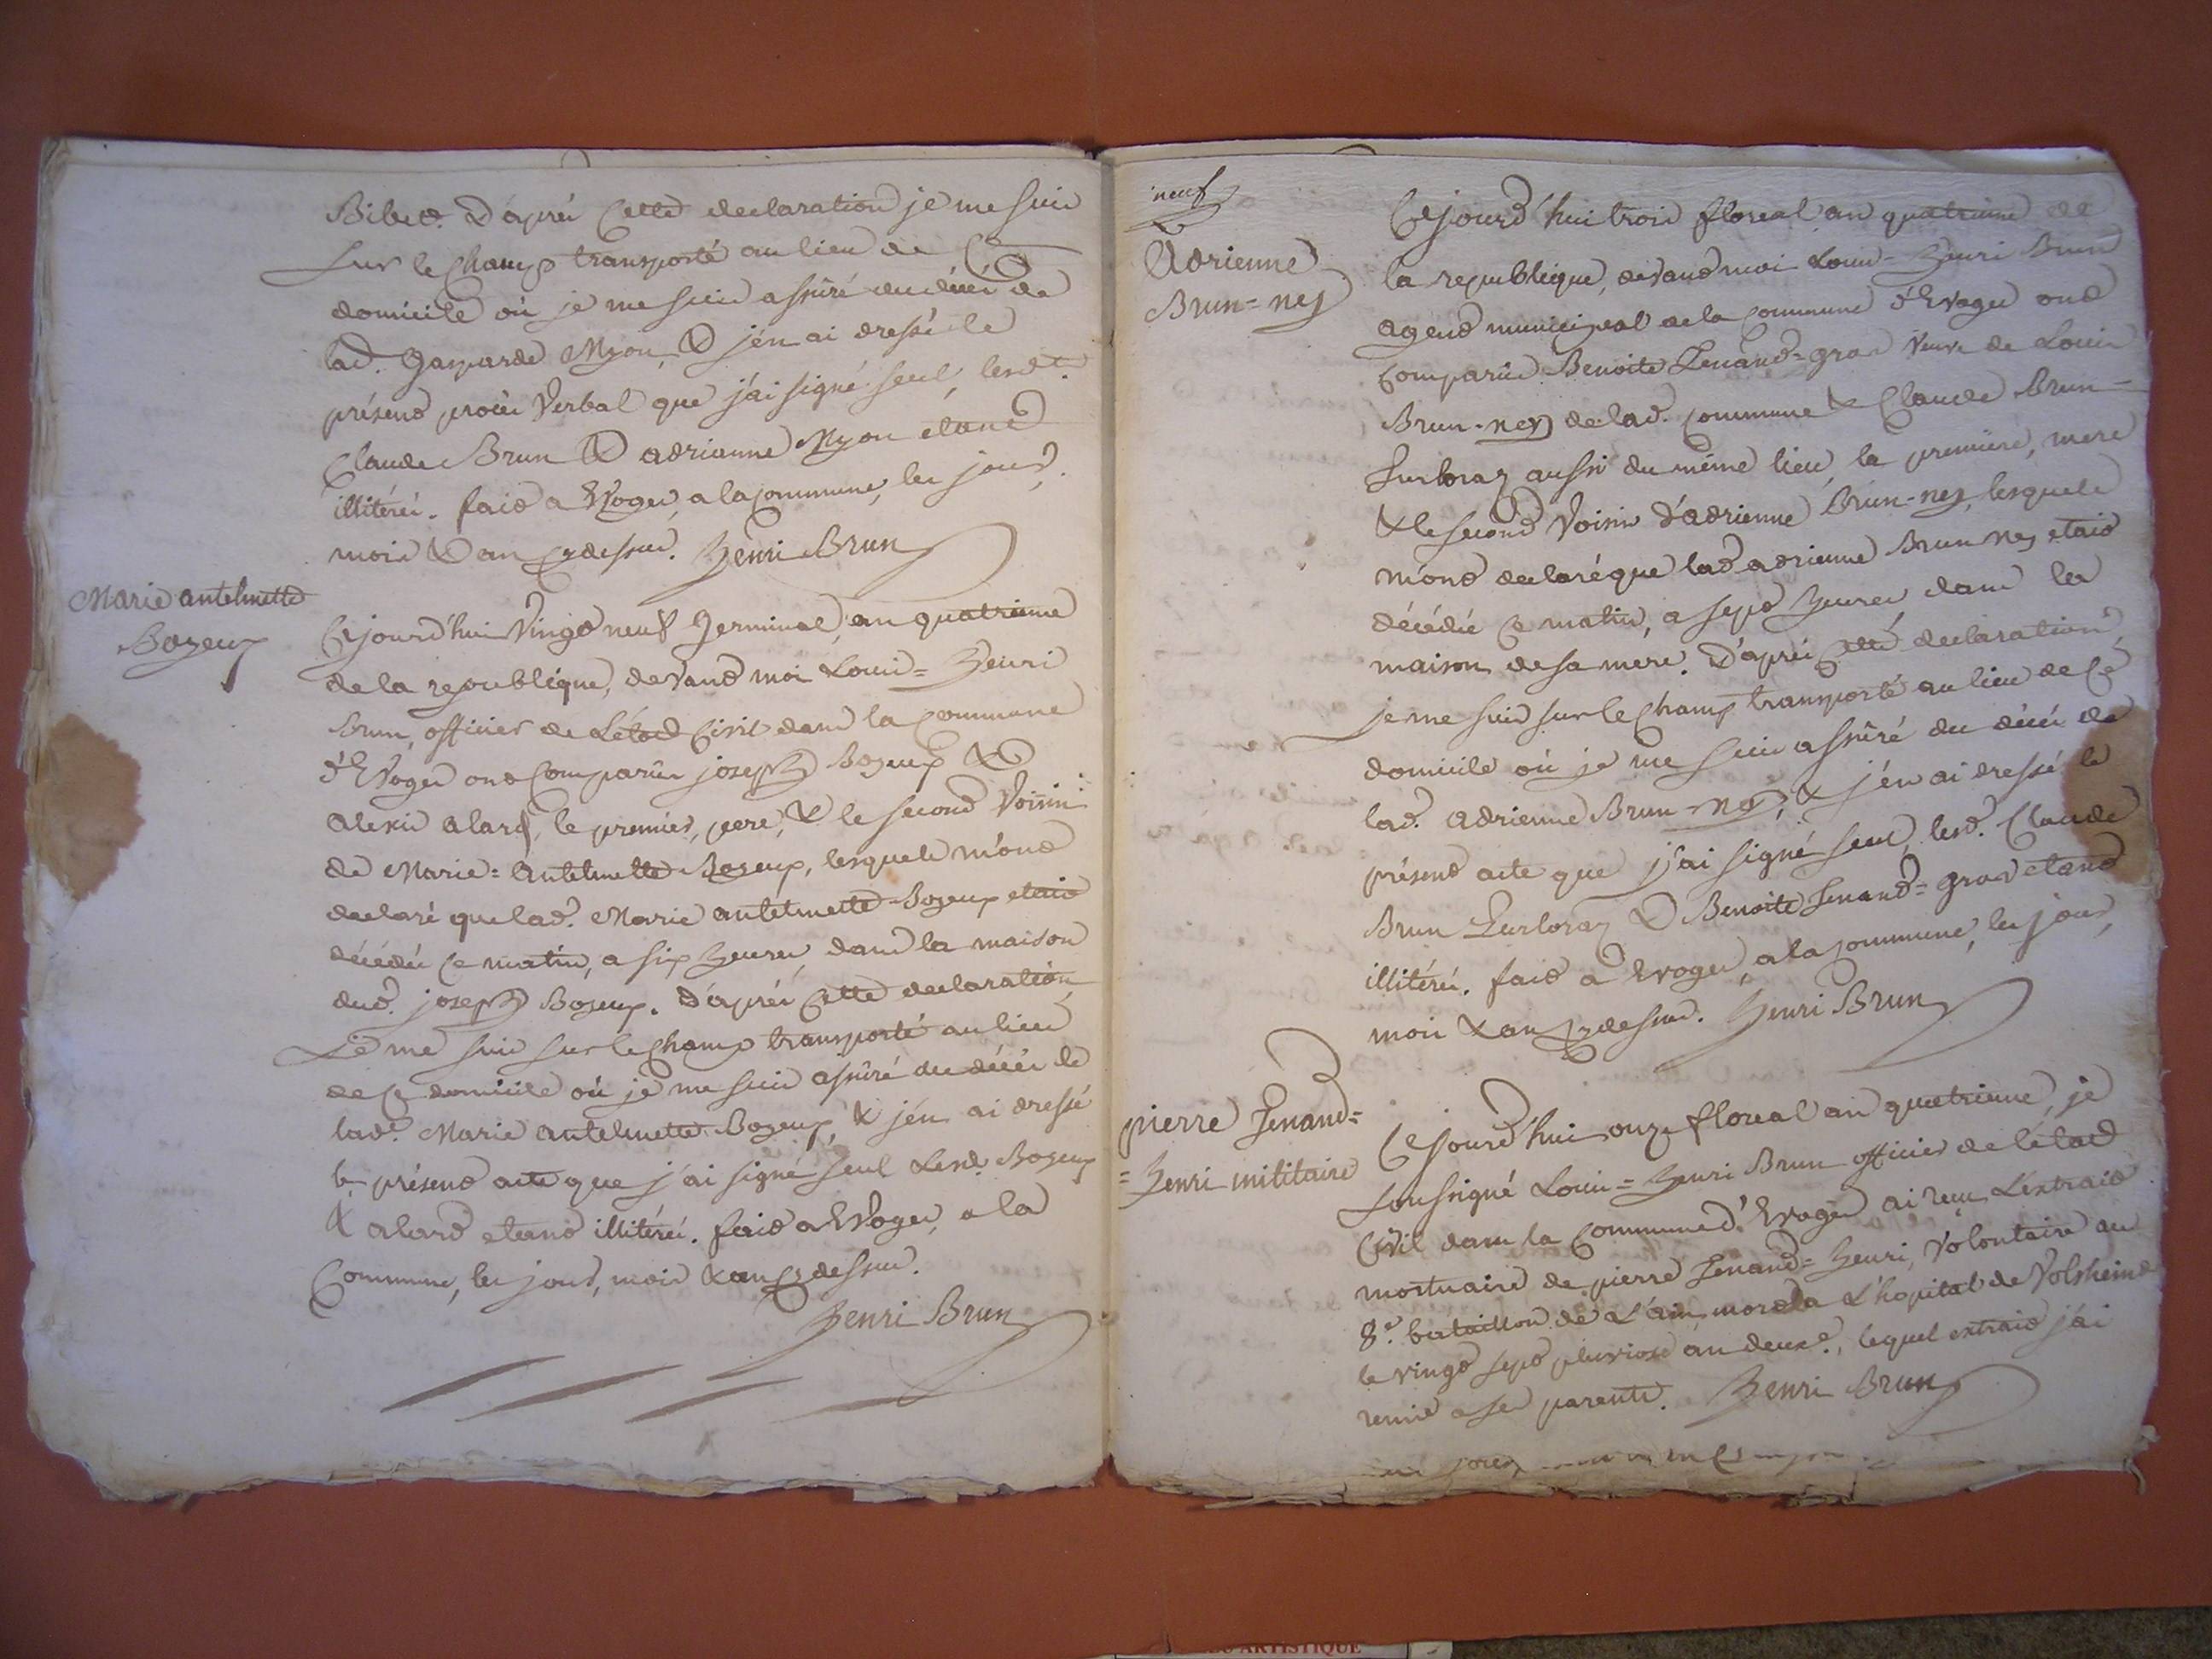 Bibet. D'après cette declaration je me suis
sur le champ transporté au lieu de ce
domicile où je me suis assûré du décés de
lad. Gasparde Myon, & j'en ai dressé le
présent procés verbal que j'ai signé seul, lesdt.
Claude Brun & adrianne Myon étant
illitérés. fait a Evoges, a la commune, les jour,
mois & an cy dessus. Henri Brun
Marie antelmette
Bozeup
Cejourd'hui vingt neuf Germinal, an quatrieme
de la republique, devant moi Louis=Henri
Brun, officier de L'état Civil dans la commune
d'Evoges ont comparûs joseph Bozeup &
alexis alard, le premier, pere, & le second voisin
de Marie=antelmette Bozeup, lesquels m'ont
declaré que lad. Marie antelmette Bozeup etait
décédée ce matin, a six heures, dans la maison
dud. joseph Bozeup. D'après cette declaration
je me suis sur le champ transporté au lieu
de ce domicile où je me suis assûré du décés de
lade. Marie antelmette Bozeup, & j'en ai dressé
le présent acte que j'ai signé seul Lesd. Bozeup
& alard etant illitérés. fait a Evoges, a la
Commune, les jour, mois & an cy dessus.
Henri Brun
neuf
Adrienne
Brun=ney
Cejourd'hui trois floreal an quatrieme de
la republique, devant moi Louis=Henri Brun
agent municipal de la commune d'Evoges ont
comparûs Benoite Jenand=gros veuve de Louis
Brun-ney de lad. commune & Claude Brun=
Surloraz aussi du même lieu, la premiere, mere
& le second voisin d'adrienne Brun-ney, lesquels
m'ont declaré que lad adrienne Brun ney etait
décédée ce matin, a sept heures, dans les
maison de sa mere. D'après cette declaration,
je me suis sur le champ transporté au lieu de ce
domicile où je me suis assûré du décés de
lad. adrienne Brun-ney, & j'en ai dressé le
présent acte que j'ai signé seul, lesd. Claude
Brun Surloraz & Benoite Jenand=gros etant
illitérés. fait a Evoges, a la commune, les jour,
mois & an cy dessus. Henri Brun
pierre Jenand=
=henri militaire
Cejourd'hui onze floreal an quatrieme, je
soussigné Louis=Henri Brun officier de l'état
Civil dans la Commune d'Evoges ai reçu L'extrait
mortuaire de pierre Jenand=henri, volontaire au
8e. bataillon de L'ain, mort a L'hopital de Volsheim
le vingt sept pluviose an deuxe., lequel extrait j'ai
remis a ses parents. Henri Brun
ARTISTIQUE